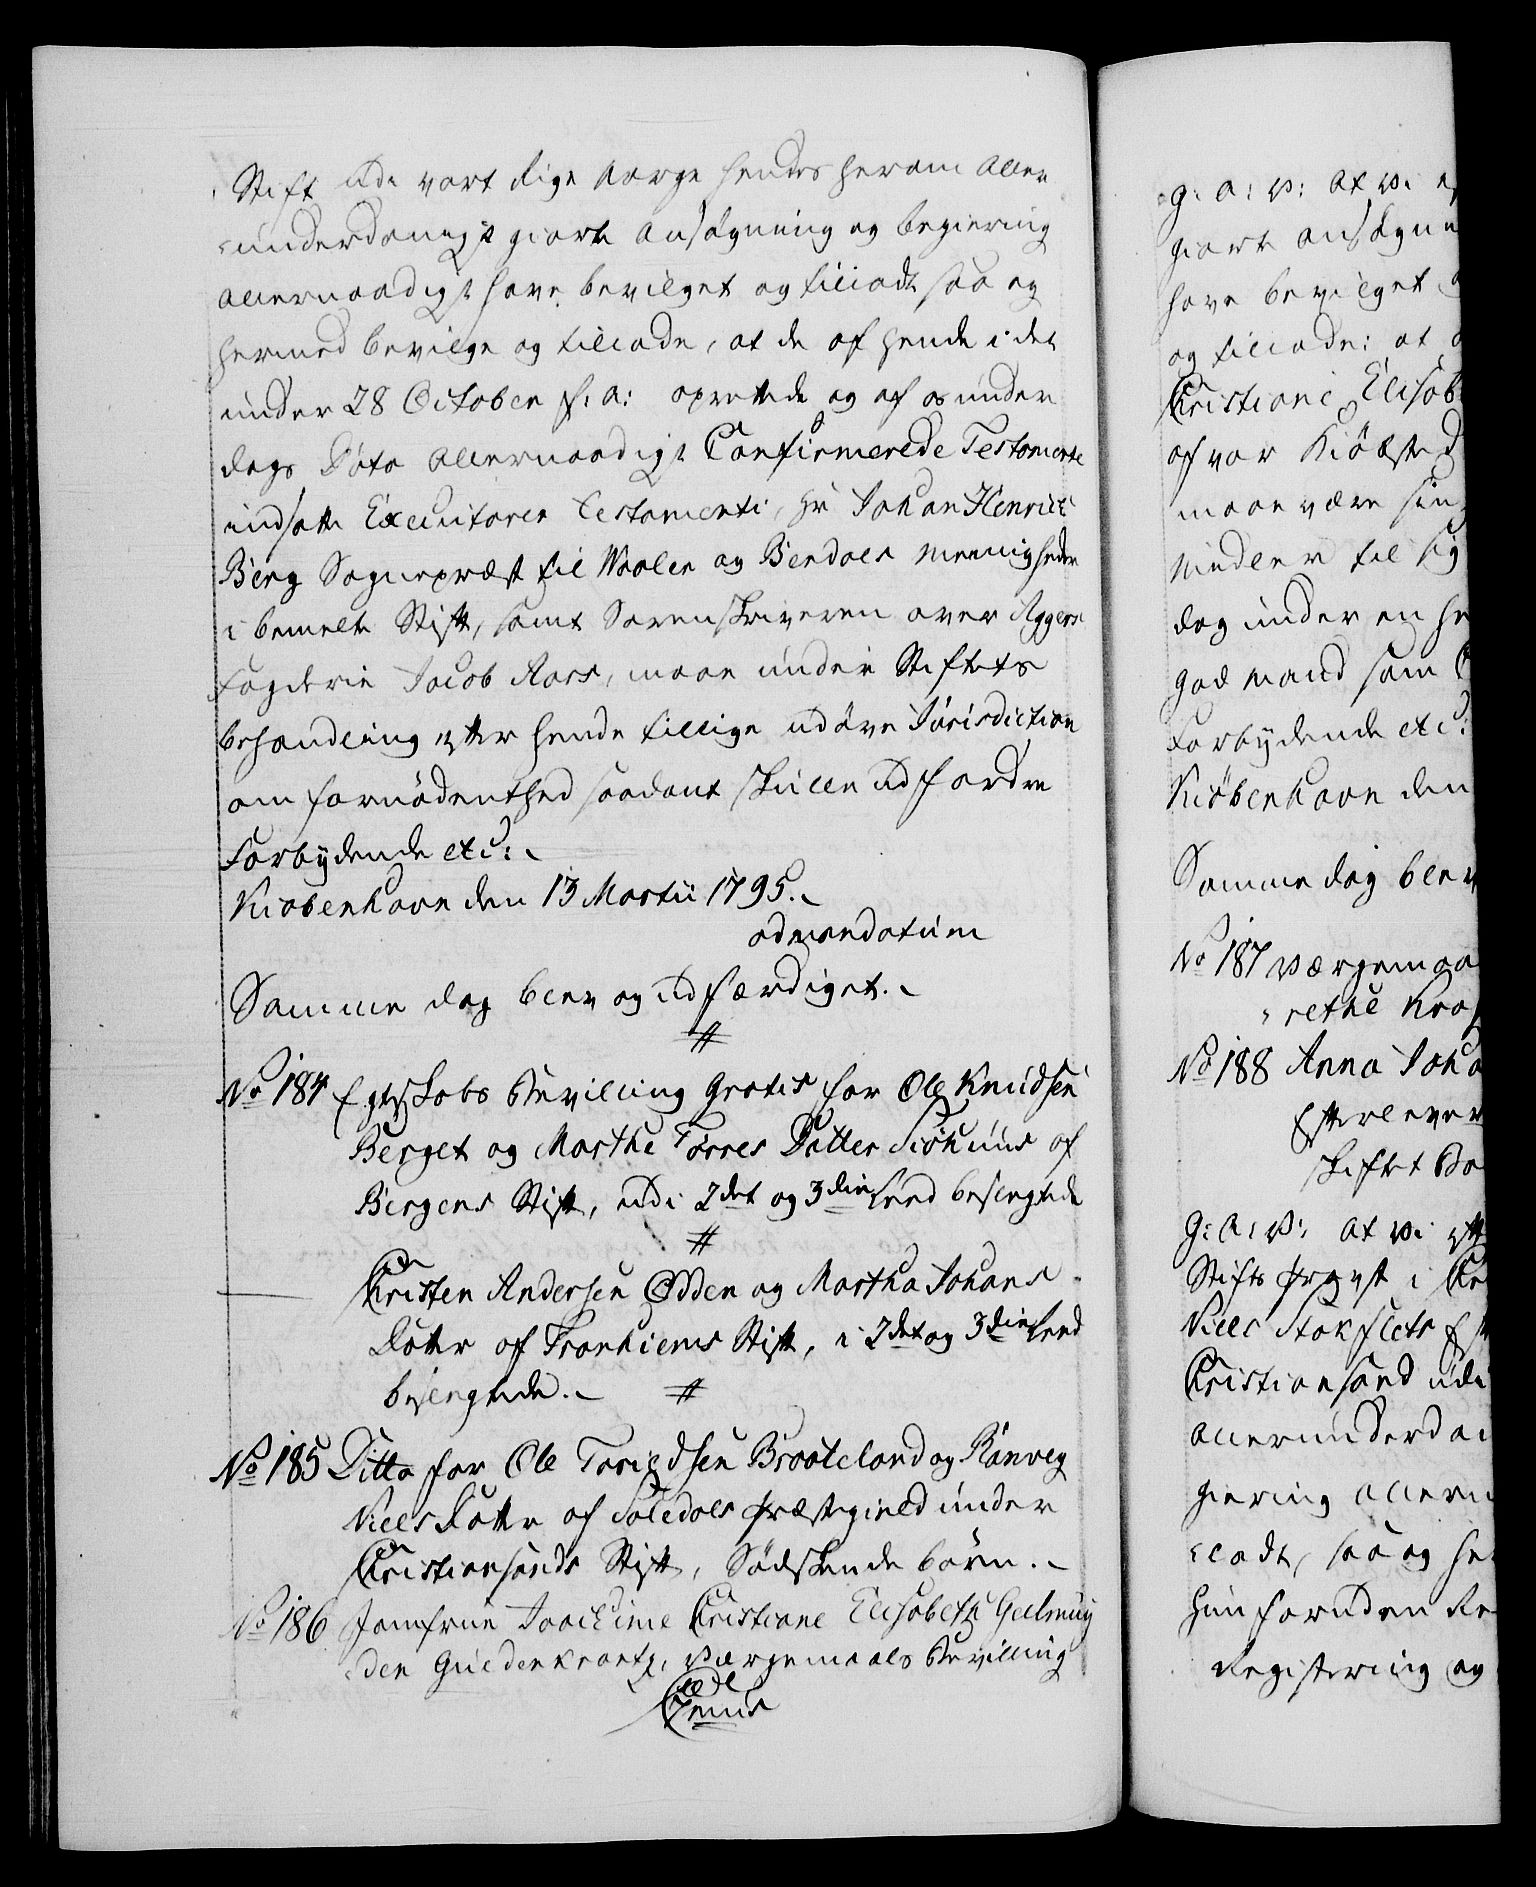 Stift udi vort Rige Norge hendes herom aller
underdanigst giorte Ansøgning og begiering
allernaadigst have bevilget og tilladt saa og
hermed bevilge og tillade, at de af hende i det
under 28 October f: a: oprettede og af os under
dags Dato allernaadigst Confirmerede Testamente
indsatte Executorer testamenti, Hr Johan Henrich
Berg Sognepræst til Waaler og Menigheder
i bemelte Stift, samt Sorenskriveren over Aggers
Fogderie Jacob Aars, maae under Stiftets
behandling efter hende tillige udøve Jurisdiction
om fornødenhed saadant skulle udfordre
Forbydende etc:
Kiøbenhavn den 13 Martii 1795.
ad mandatum
Samme dag blev og udfærdiget.
#
No 184 Egteskabs Bevilling Gratis for Ole Knudsen
Berget og Marthe Torres Datter af
Bergens Stift, udi 2det og 3die Leed beslegtede
#
Christen Andersen Odden og Martha Johans
Datter af Tronhiems Stift, i 2det og 3die Leed
beslegtede. #
No 185 Ditto for Ole Brooteland og Rønveg
Niels Datter af præstegield under
Christiansands Stift, Sødskende børn.
No 186 Jomfrue Joachime Christiane Elisabeth Gelmuy
den Güldenkrantz, Værgemaals Bevilling
g: a: v: at vi
giorte ansøgn
have bevilget
og tillade: at
Christiane Elisab
af vor Kiøbsted
maae være sin
Midler til sig
dog under en
god mand som
Forbydende etc:
Kiøbenhavn den
Samme dag blev
No 187 Værgemaa
rethe
No 188 Anna Joha
Efterlever
skiftet Bo
g: a: v: at vi
Stifts Provst i
Niels Stokflets
Christiansand udi
allerunderda
giering allern
ladt, saa og he
hun foruden Re
Registering og